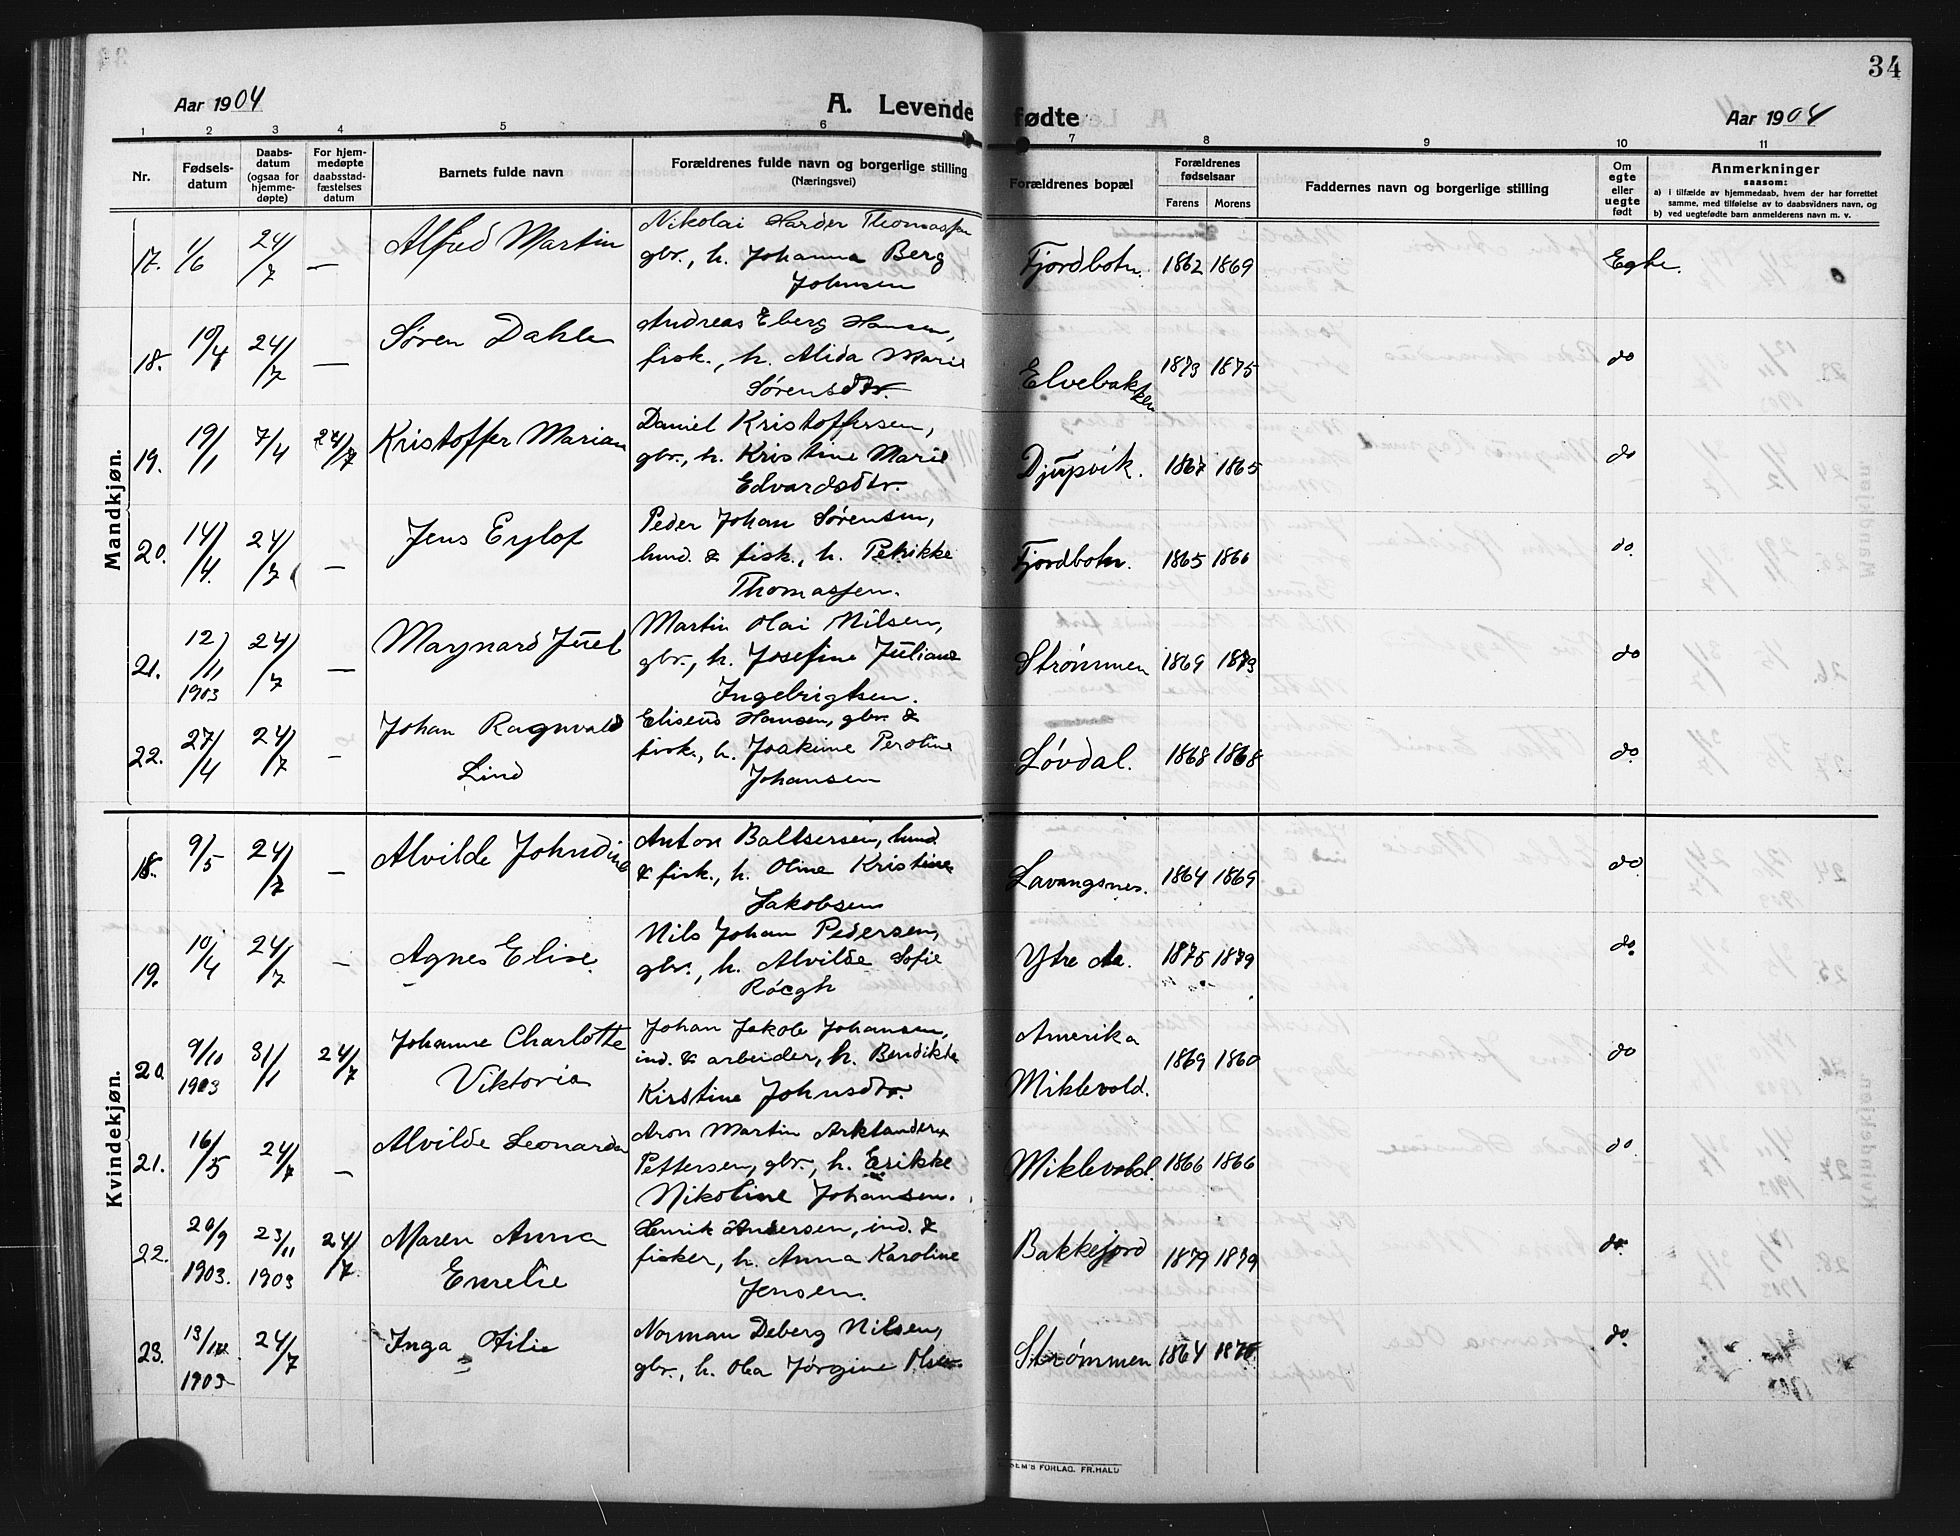 34
Aar 1904
A. Levende fødte
Aar 1904
1 2 3 4 5 6 7 8 9 10 11
Nr.
Fødsels-
datum
Daabs-
datum
(ogsaa for
hjemme-
døpte)
For hjem-
medøpte
daabsstad-
fæstelses
datum
Barnets fulde navn
Forældrenes fulde navn og borgerlige stilling
(Næringsvei)
Forældrenes bopæl
Forældrenes
fødselsaar
Farens Morens
Faddernes navn og borgerlige stilling
Om
egte
eller
uegte
født
Anmerkninger
saasom:
a) i tilfælde av hjemmedaab, hvem der har forrettet
samme, med tilføielse av to daabsvidners navn, og
b) ved uegtefødte barn anmelderens navn m. v.
Mandkjøn.
17. 1/6 24/7 — Alfred Martin
Nikolai Harder Thomassen
gbr., h. Johanna Berg
Johnsen
Fjordbotn. 1862 1869 Egte.
18. 10/4 24/7 — Søren Dahle
Andreas Eberg Hansen,
fisk., h. Alida Marie
Sørensdtr.
Elvebakken 1873 1875 do
19. 19/1 7/4 24/7 Kristoffer Marian
Daniel Kristoffersen,
gbr., h. Kristine Marie
Edvardsdtr.
Djupvik. 1867 1865 do
20. 14/4. 24/7 — Jens Erlof
Peder Johan Sørensen,
hmd. & fisk., h. Petrikke
Thomassen.
Fjordbotn. 1865 1866 do.
21. 12/11 1903 24/7 — Magnard Juel
Martin Olai Nilsen,
gbr., h. Josefine Juliane
Ingebrigtsen.
Strømmen 1869 1873 do
22. 27/4 24/7 — Johan Ragnvald
Lind
Eliseus Hansen, gbr. &
fisk., h. Joakime Peroline
Johansen
Løvdal. 1868 1868 do.
Kvindekjøn.
18. 9/5 24/7 — Alvilde Johndine
Anton Baltsersen, hmd.
& fisk., h. Oline Kristine
Jakobsen
Lavangsnes. 1864 1869 do.
19. 10/4 24/7 — Agnes Elise.
Nils Johan Pedersen,
gbr., h. Alvilde Sofie
Røegh
Ytre Aa. 1875 1879 do.
20. 9/10 1903 31/1 24/7 Johanne Charlotte
Viktoria
Johan Jakob Johansen,
ind. & arbeider, h. Bendikte
Kirstine Johnsdtr.
Amerika
Miklevold. 1869 1860 do
21. 16/5 24/7 — Alvilde Leonarda
Aron Martin Arktander
Pettersen, gbr., h. Erikke
Nikoline Johansen.
Miklevold. 1866 1866 do.
22. 20/9 1903. 23/11 1903 24/7. Maren Anna
Emelie
Henrik Andersen, ind. &
fisker, h. Anna Karoline
Jensen.
Bakkejord 1879 1879 do.
23. 13/12 1903 24/7 Inga Otilie
Norman Deberg Nilsen,
gbr., h. Ola Jørgine Olsen
Strømmen 1864 1875 do.
FORLAG. FR.HALD